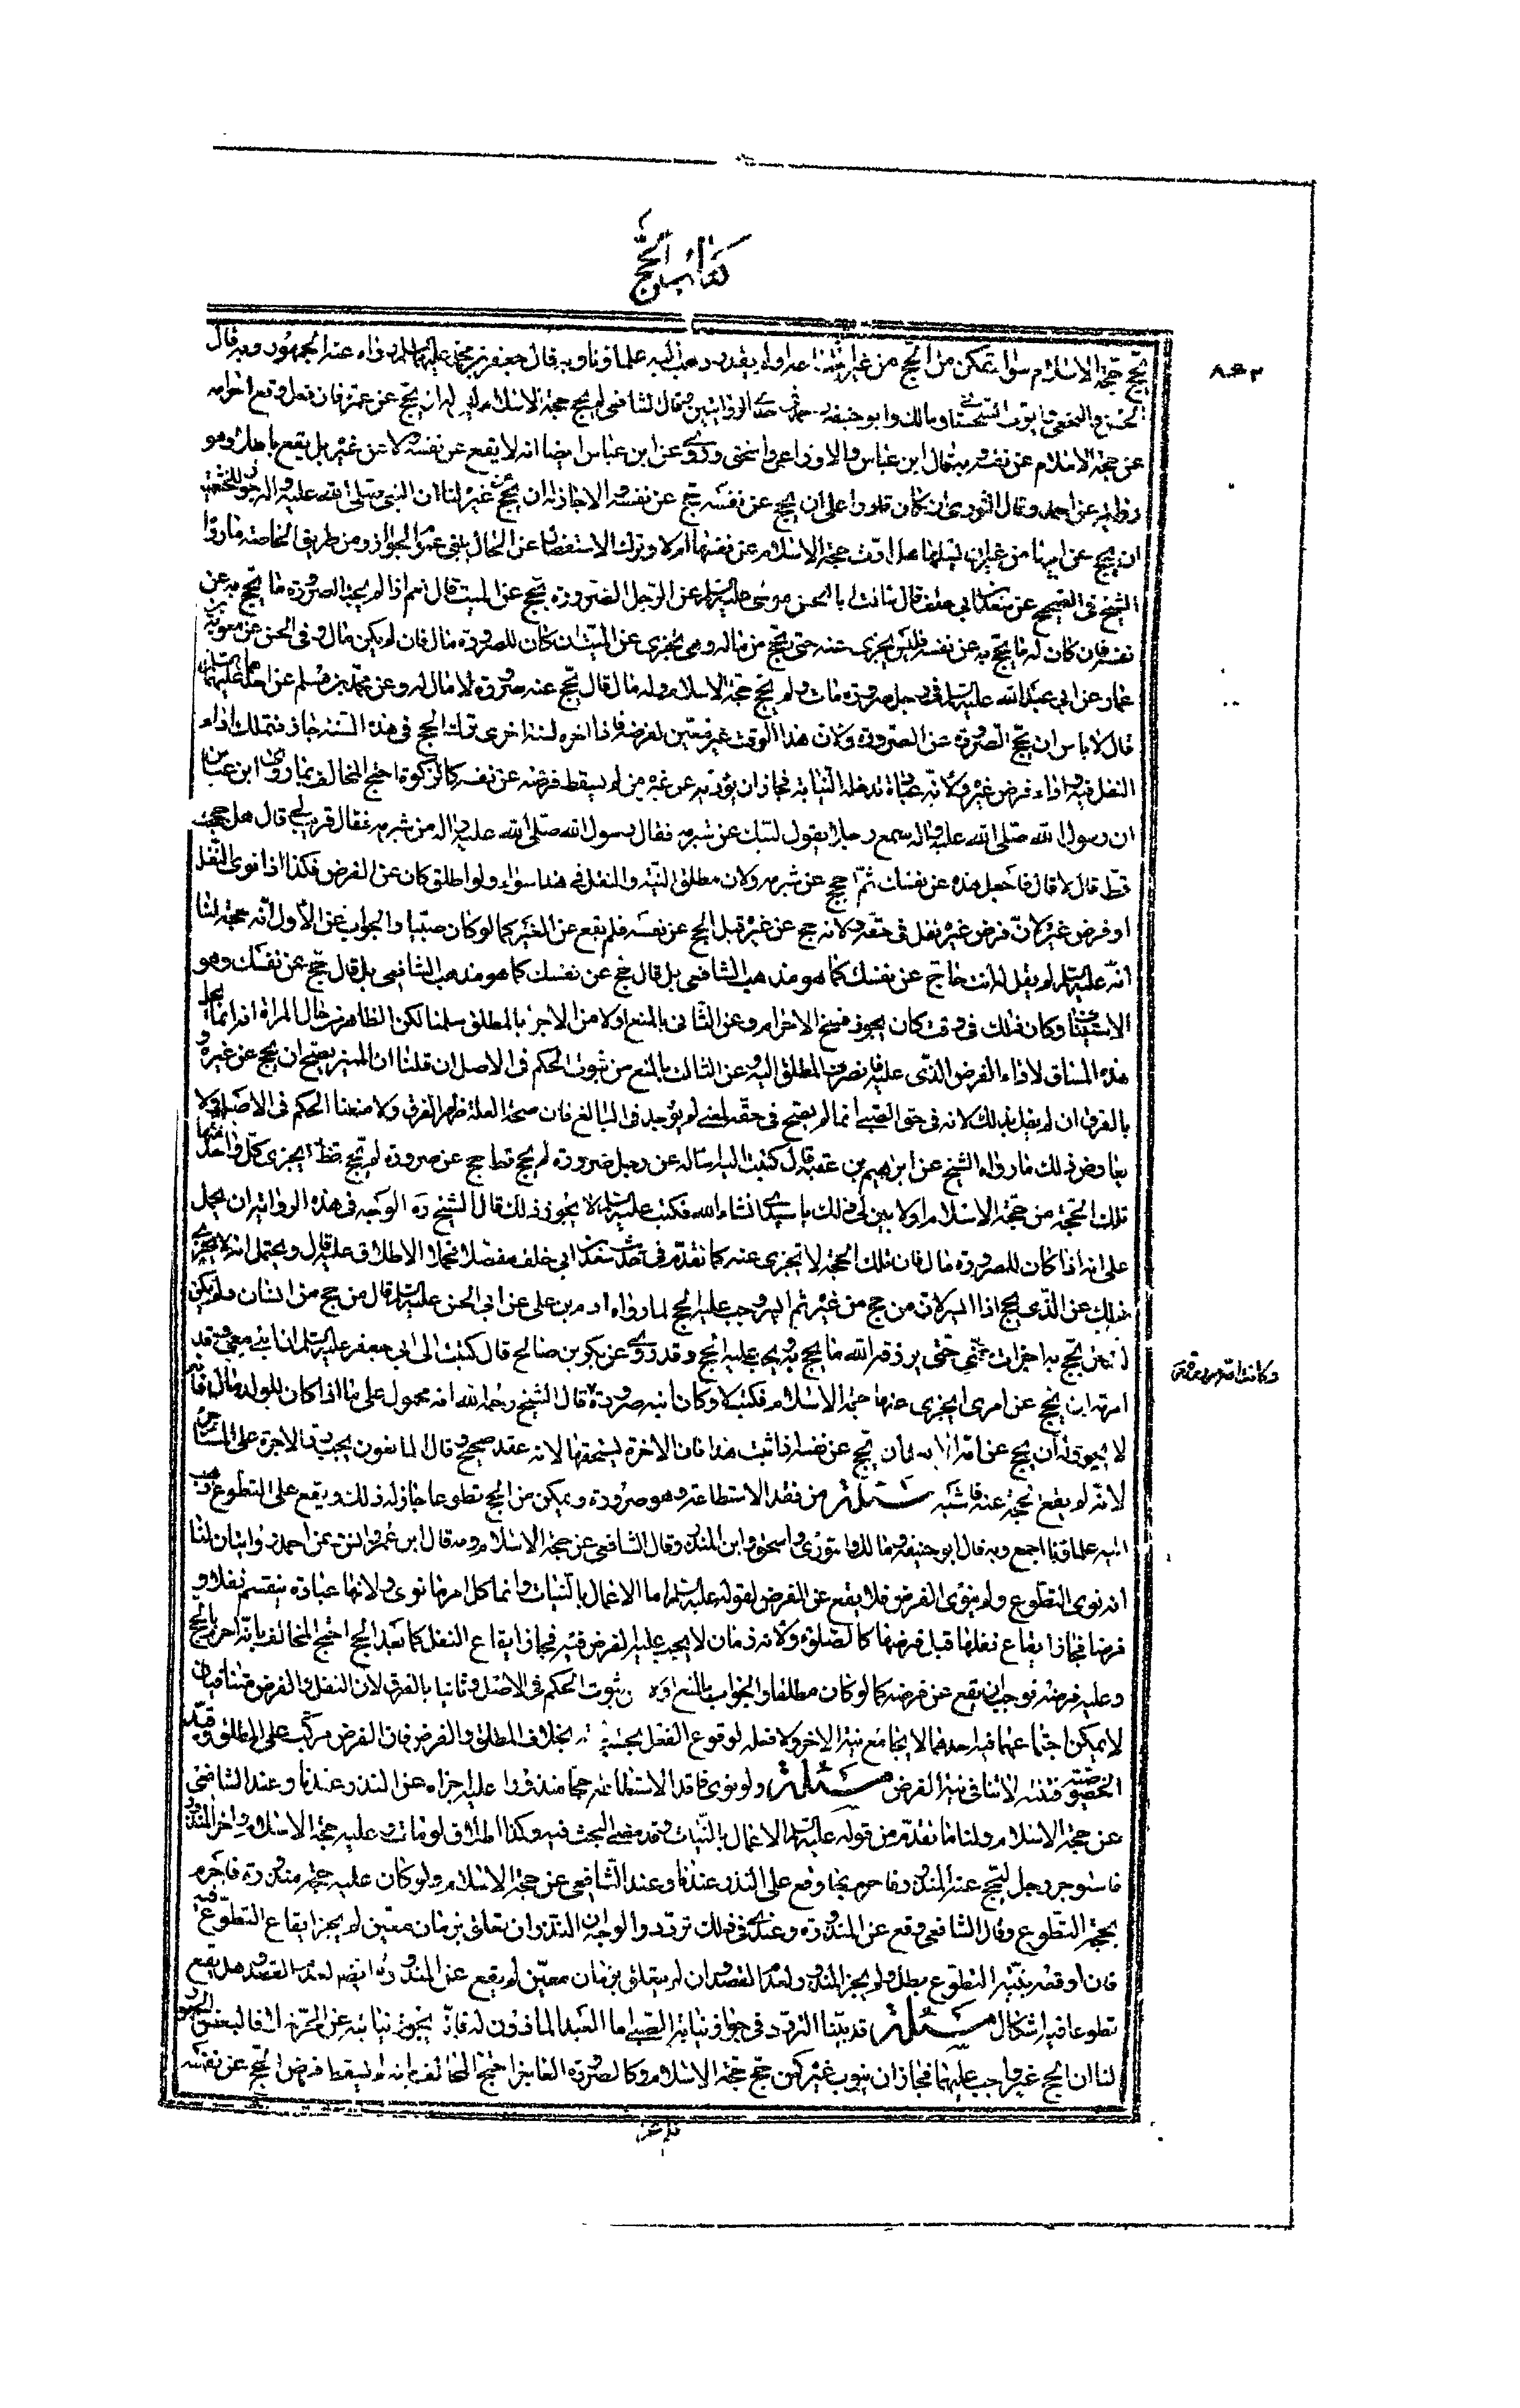 كتاب الحج
٨٦٢
يحج حجة الاسلام سواء تمكن من الحج من غير استطاعة او لم يقدر ذهب اليه علماؤنا وبه قال جعفر بن محمد عليهما السلام رواه عنه الجمهور وبه قال
الحسن والنخعي وايوب السختياني ومالك وابو حنيفة واحمد في احدى الروايتين وقال الشافعي لم يحج حجة الاسلام ليس له ان يحج عن غيره فان فعل وقع احرامه
عن حجة الاسلام عن نفسه وبه قال ابن عباس والاوزاعي واسحق وروى عن ابن عباس ايضا انه لا يقع عن نفسه ولا عن غيره بل يقع باطلا وهو
رواية عن احمد وقال الثوري ان كان قادرا على ان يحج عن نفسه حج عن نفسه والا جاز له ان يحج عن غيره لنا ان النبي صلى الله عليه واله جوز للخثعمية
ان يحج عن ابيها من غير ان يسئلها هل ادت حجة الاسلام عن نفسها ام لا وترك الاستفصال عن الحال ينبئ عموم الجواز ومن طريق الخاصة ما رواه
الشيخ في الصحيح عن سعد بن ابي خلف قال سالت ابا الحسن موسى عليه السلم عن الرجل الصرورة يحج عن الميت قال نعم اذا لم يجد الصرورة ما يحج به عن
نفسه فان كان له ما يحج به عن نفسه فليس يجزى عنه حتى يحج من ماله وهى تجزى عن الميت ان كان للصرورة مال فان لم يكن مال وفي الحسن عن معوية بن
عمار عن ابي عبد الله عليه السلم في رجل صرورة مات ولم يحج حجة الاسلام وله مال قال يحج عنه صرورة لا مال له وعن محمد بن مسلم عن احدهما عليهما السلم
قال لا باس ان يحج الصرورة عن الصرورة ولان هذا الوقت غير متعين لفرضه فاذا اخره لسنة اخرى ترك الحج في هذه السنة جاز فتملك اداء
النفل فيه واداء فرض غيره ولانه عبادة تدخله النيابة فجاز ان يؤديه عن غيره من لم يسقط فرضه عن نفسه كالزكوة احتج المخالف بما روى ابن عباس
ان رسول الله صلى الله عليه واله سمع رجلا يقول لبيك عن شبرمه فقال رسول الله صلى الله عليه واله من شبرمه فقال قريب لي قال هل حججت
قط قال لا قال فاجعل هذه عن نفسك ثم احجج عن شبرمه ولان مطلق النية والنفل في هذا سواء ولو اطلق كان عن الفرض فكذا اذا نوى النفل
او فرض غيره لان فرض غيره نفل في حقه ولانه حج عن غيره قبل الحج عن نفسه فلم يقع عن الغير كما لو كان صبيا والجواب عن الاول انه حجة لنا
انه عليه السلم لم يقل له انت حاج عن نفسك كما هو مذهب الشافعي بل قال حج عن نفسك كما هو مذهب الشافعي بل قال حج عن نفسك وهو
الاستيناف وكان ذلك في وقت كان يجوز فسخ الاحرام وعن الثاني بالمنع اولا من الاجزاء بالمطلق سلمنا لكن الظاهر من حال المراة انه انما يحمل
هذه المشاق لاداء الفرض الذى عليه فانصرف المطلق اليه وعن الثالث بالمنع من ثبوت الحكم في الاصل ان قلنا ان المميز يصح ان يحج عن غيره و
بالفرق ان لم يقل بذلك لانه في حق الصبي انما لم يصح في حقه لمعنى لم يوجد في البالغ فان صحة العلة ظهر الفرق ولا منعنا الحكم في الاصل ولا
يعارض ذلك ما رواه الشيخ عن ابرهيم بن عقبة قال كتبت اليه اساله عن رجل صرورة لم يحج قط حج عن صرورة لم يحج قط ايجزى كل واحد منهما
تلك الحجة من حجة الاسلام او لا بين لي ذلك يا سيدي انشاء الله فكتب عليه السلم لا يجوز ذلك قال الشيخ ره الوجه في هذه الرواية ان يحمل
على انه اذا كان للصرورة مال فان تلك الحجة لا تجزى عنه كما تقدم في حديث سعد بن ابي خلف مفصلا فحمل الاطلاق عليه قال ويحتمل انه لا يجزى
ذلك عن الذى يحج اذا ايسر لان من حج من غيره ثم ايسر وجب عليه الحج لما رواه ادم بن علي عن ابي الحسن عليه السلم قال من حج من انسان ولم يكن
له مال يحج به اجزات عنه حتى يرزقه الله ما يحج به ويجب عليه الحج وقد روى عن بكر بن صالح قال كتبت الى ابي جعفر عليه السلم ان ابني معي وقد
امرته ان يحج عن امي ايجزى عنها حجة الاسلام فكتب لا وكان ابنه صرورة قال الشيخ رحمه الله انه محمول على ما اذا كان للولد مال فانه
وكانت امه صرورة
لا يجوز له ان يحج عن امه الا بعد ان يحج عن نفسه اذا ثبت هذا فان الاجرة يستحقها لانه عقد صحيح وقال المانعون يجب رد الاجرة على المستاجر
لانه لم يقع الحجة عنه فاشبه مسئلة من فقد الاستطاعة وهو صرورة ويمكن من الحج تطوعا جاز له ذلك ويقع على التطوع ذهب
اليه علماؤنا اجمع وبه قال ابو حنيفة ومالك والثوري واسحق وابن المنذر وقال الشافعي عن حجة الاسلام وبه قال ابن عمر وانس وعن احمد روايتان لنا
انه نوى التطوع ولم ينوى الفرض فلا يقع عن الفرض لقوله عليه السلم انما الاعمال بالنيات وانما كل امرئ ما نوى ولانها عبادة ينقسم نفلا و
فرضا فجاز ايقاع نفلها قبل فرضها كالصلوة ولانه زمان لا يجب عليه الفرض فيه فجاز ايقاع النفل كما بعد الحج احتج المخالف بانه احرم بالحج
وعليه فرضه فوجب ان يقع عن فرضه كما لو كان مطلقا والجواب بالمنع اولا من ثبوت الحكم في الاصل وثانيا بالفرق لان النفل والفرض متنافيان
لا يمكن اجتماعهما فنية احدهما لا يجامع نية الاخر ولا فعله لوقوع الفعل بحسب النية بخلاف المطلق والفرض فان الفرض مركب على المطلق وقيد
الخصوصية فنية لا تنافي نية الفرض مسئلة ولو نوى فاقد الاستطاعة حجا منذورا عليه اجزاه عن النذر عندنا وعند الشافعي
عن حجة الاسلام ولنا ما تقدم من قوله عليه السلم الاعمال بالنيات وقد مضى البحث فيه وكذا الخلاف لو مات وعليه حجة الاسلام واخرى المنذورة
فاستوجر رجل ليحج عنه المنذور فاحرم بها وقع على النذر عندنا وعند الشافعي عن حجة الاسلام ولو كان عليه حجة منذورة فاحرم
بحجة التطوع وقال الشافعي وقع عن المنذورة وعندي في ذلك تردد والوجه ان النذر ان تعلق بزمان معين لم يجز ايقاع التطوع فيه
فان اوقعه بنية التطوع بطل ولم يجز المنذور لعدم القصد وان لم يتعلق بزمان معين لم يقع عن المنذورة ايضا لعدم القصد وهل يقع
تطوعا فيه اشكال مسئلة قد بينا التردد في جواز نيابة الصبي اما العبد الماذون له فانه يجوز نيابته عن الحر خلافا لبعض الجمهور
لنا ان الحج غير واجب عليهما فجاز ان ينوب غيره كمن حج حجة الاسلام وكالصرورة العاجز احتج المخالف بانه لم يسقط فرض الحج عن نفسه